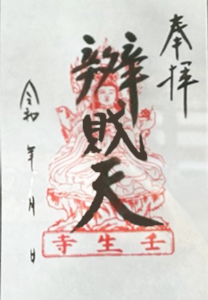 奉拝
辨財天
令和 年 月 日
壬生寺